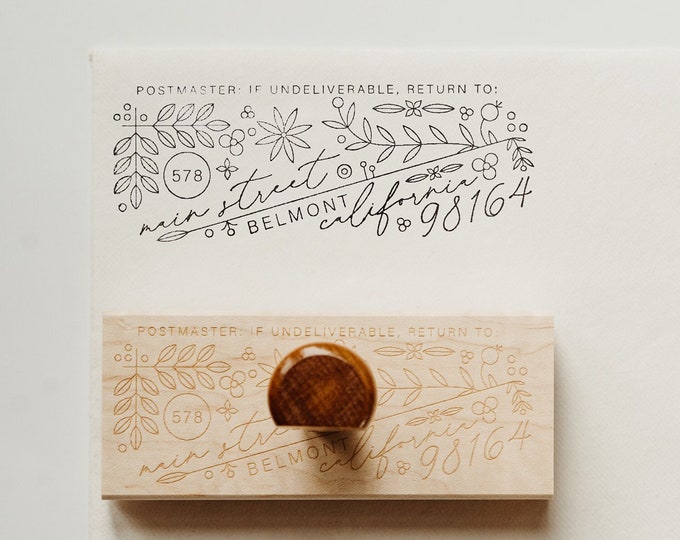 POSTMASTER: IF UNDELIVERABLE, RETURN TO:
578
main street
BELMONT
california
98164
POSTMASTER: IF UNDELIVERABLE, RETURN TO:
578
main street
BELMONT
california
98164